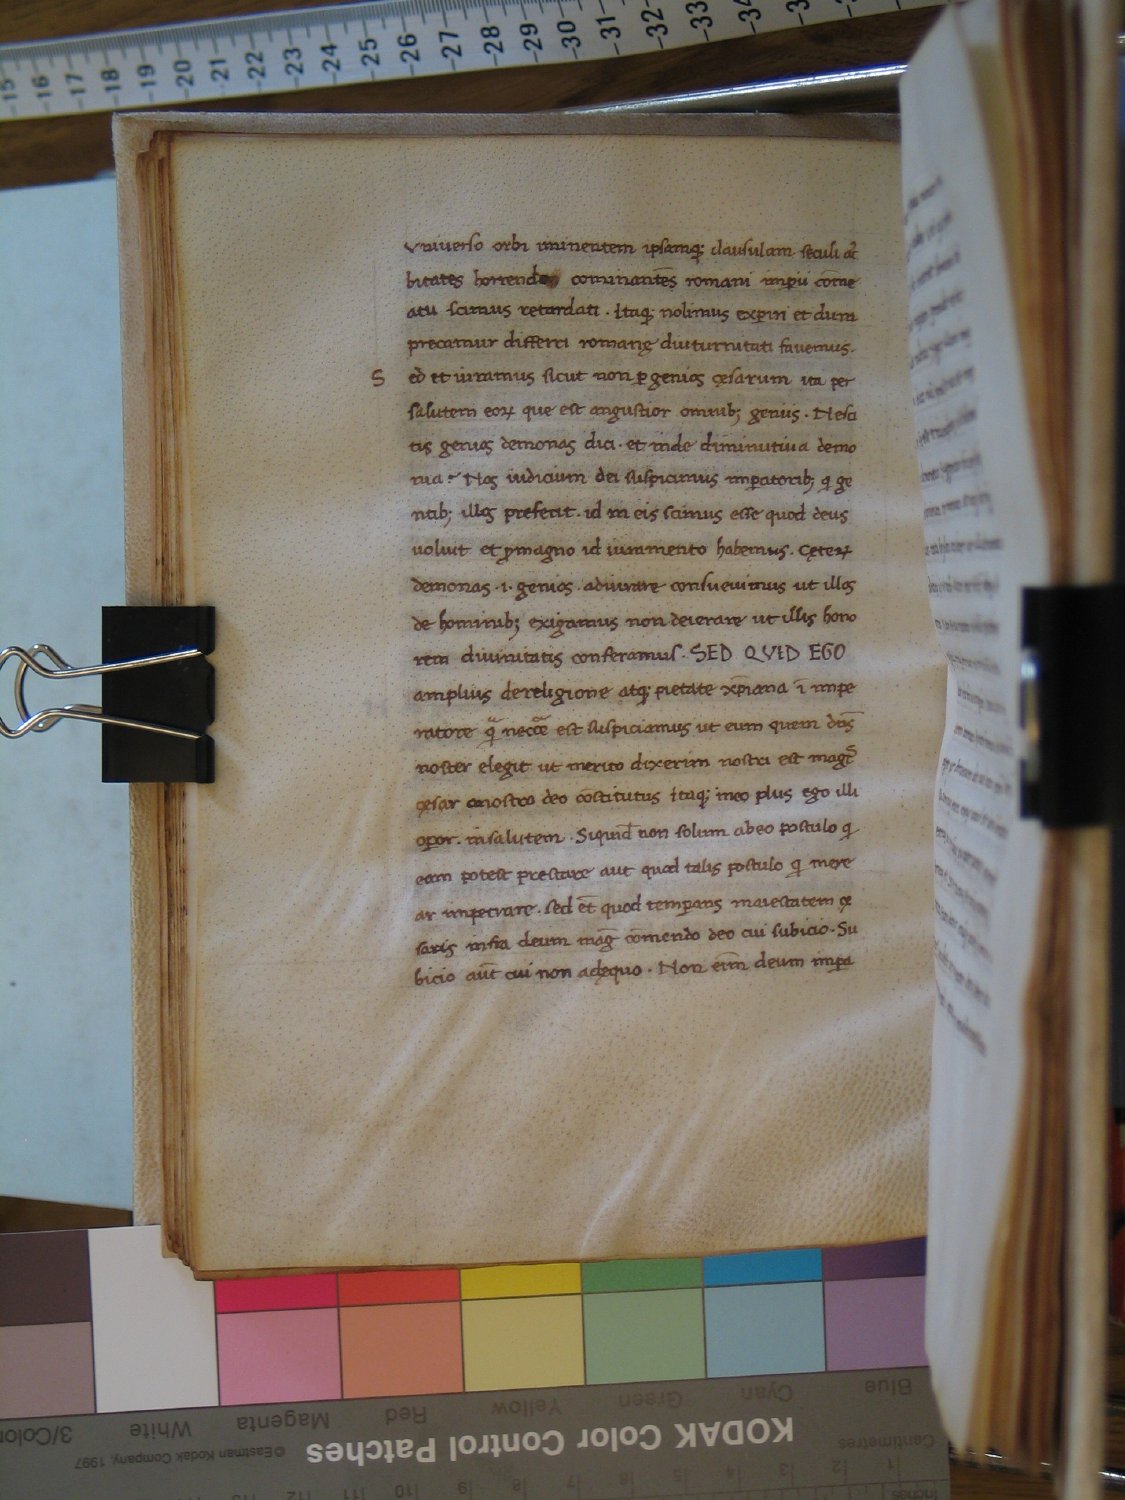 -15 -16 -17 -18 -19 -20 -21 -22 -23 -24 -25 -26 -27 -28 -29 -30 -31 -32 -33 -34
vniuerso orbi iminentem ipsamq; clausulam seculi ac̄
bitates horrendo cominantēs romani imperii com̄e
atu scimus retardati . Itaq; nolimus exꝑiri et dum
precamur differri romanę diuturnitati fauemus.
S ed et iuramus sicut non ꝑ genios cęsarum ita per
salutem eoꝝ que est angustior omnib; genius . Nesci
tis genios demonas dici . et inde diminutiua demo
nia ? Nos iudicium dei suspicimus imꝑatorib; q̣ ge
ntib; illos prefecit . id in eis scimus esse quod deus
uoluit et ꝓmagno id iuramento habemus . Cęteꝝ
demonas .i. genios . adiurare consueuimus ut illos
de hominib; exigamus non deierare ut illis hono
rem diuinitatis conferamus . SED QVID EGO
amplius de religione atq; pietate xp̄iana ī impe
ratore q̄ necc̄e est suspiciamus ut eum quem dn̄s
noster elegit ut merito dixerim nostri est magˢ
cęsar anostro deo cōstitutus Itaq; meo plus ego illi
oꝑor . insalutem . Siquid̄ non solum abeo postulo q̣
eam potest prestare aut quod talis postulo q̣ mere
ar impetrare . sed et̄ quod temꝑans maiestatem cę
saris infra deum maḡ com̄endo deo cui subicio . Su
bicio aut̄ cui non adęquo . Non eīm deum impa
KODAK Color Control Patches
©Eastman Kodak Company, 1997
3/Color White Magenta Red Yellow Green Cyan Blue
Centimetres
Inches